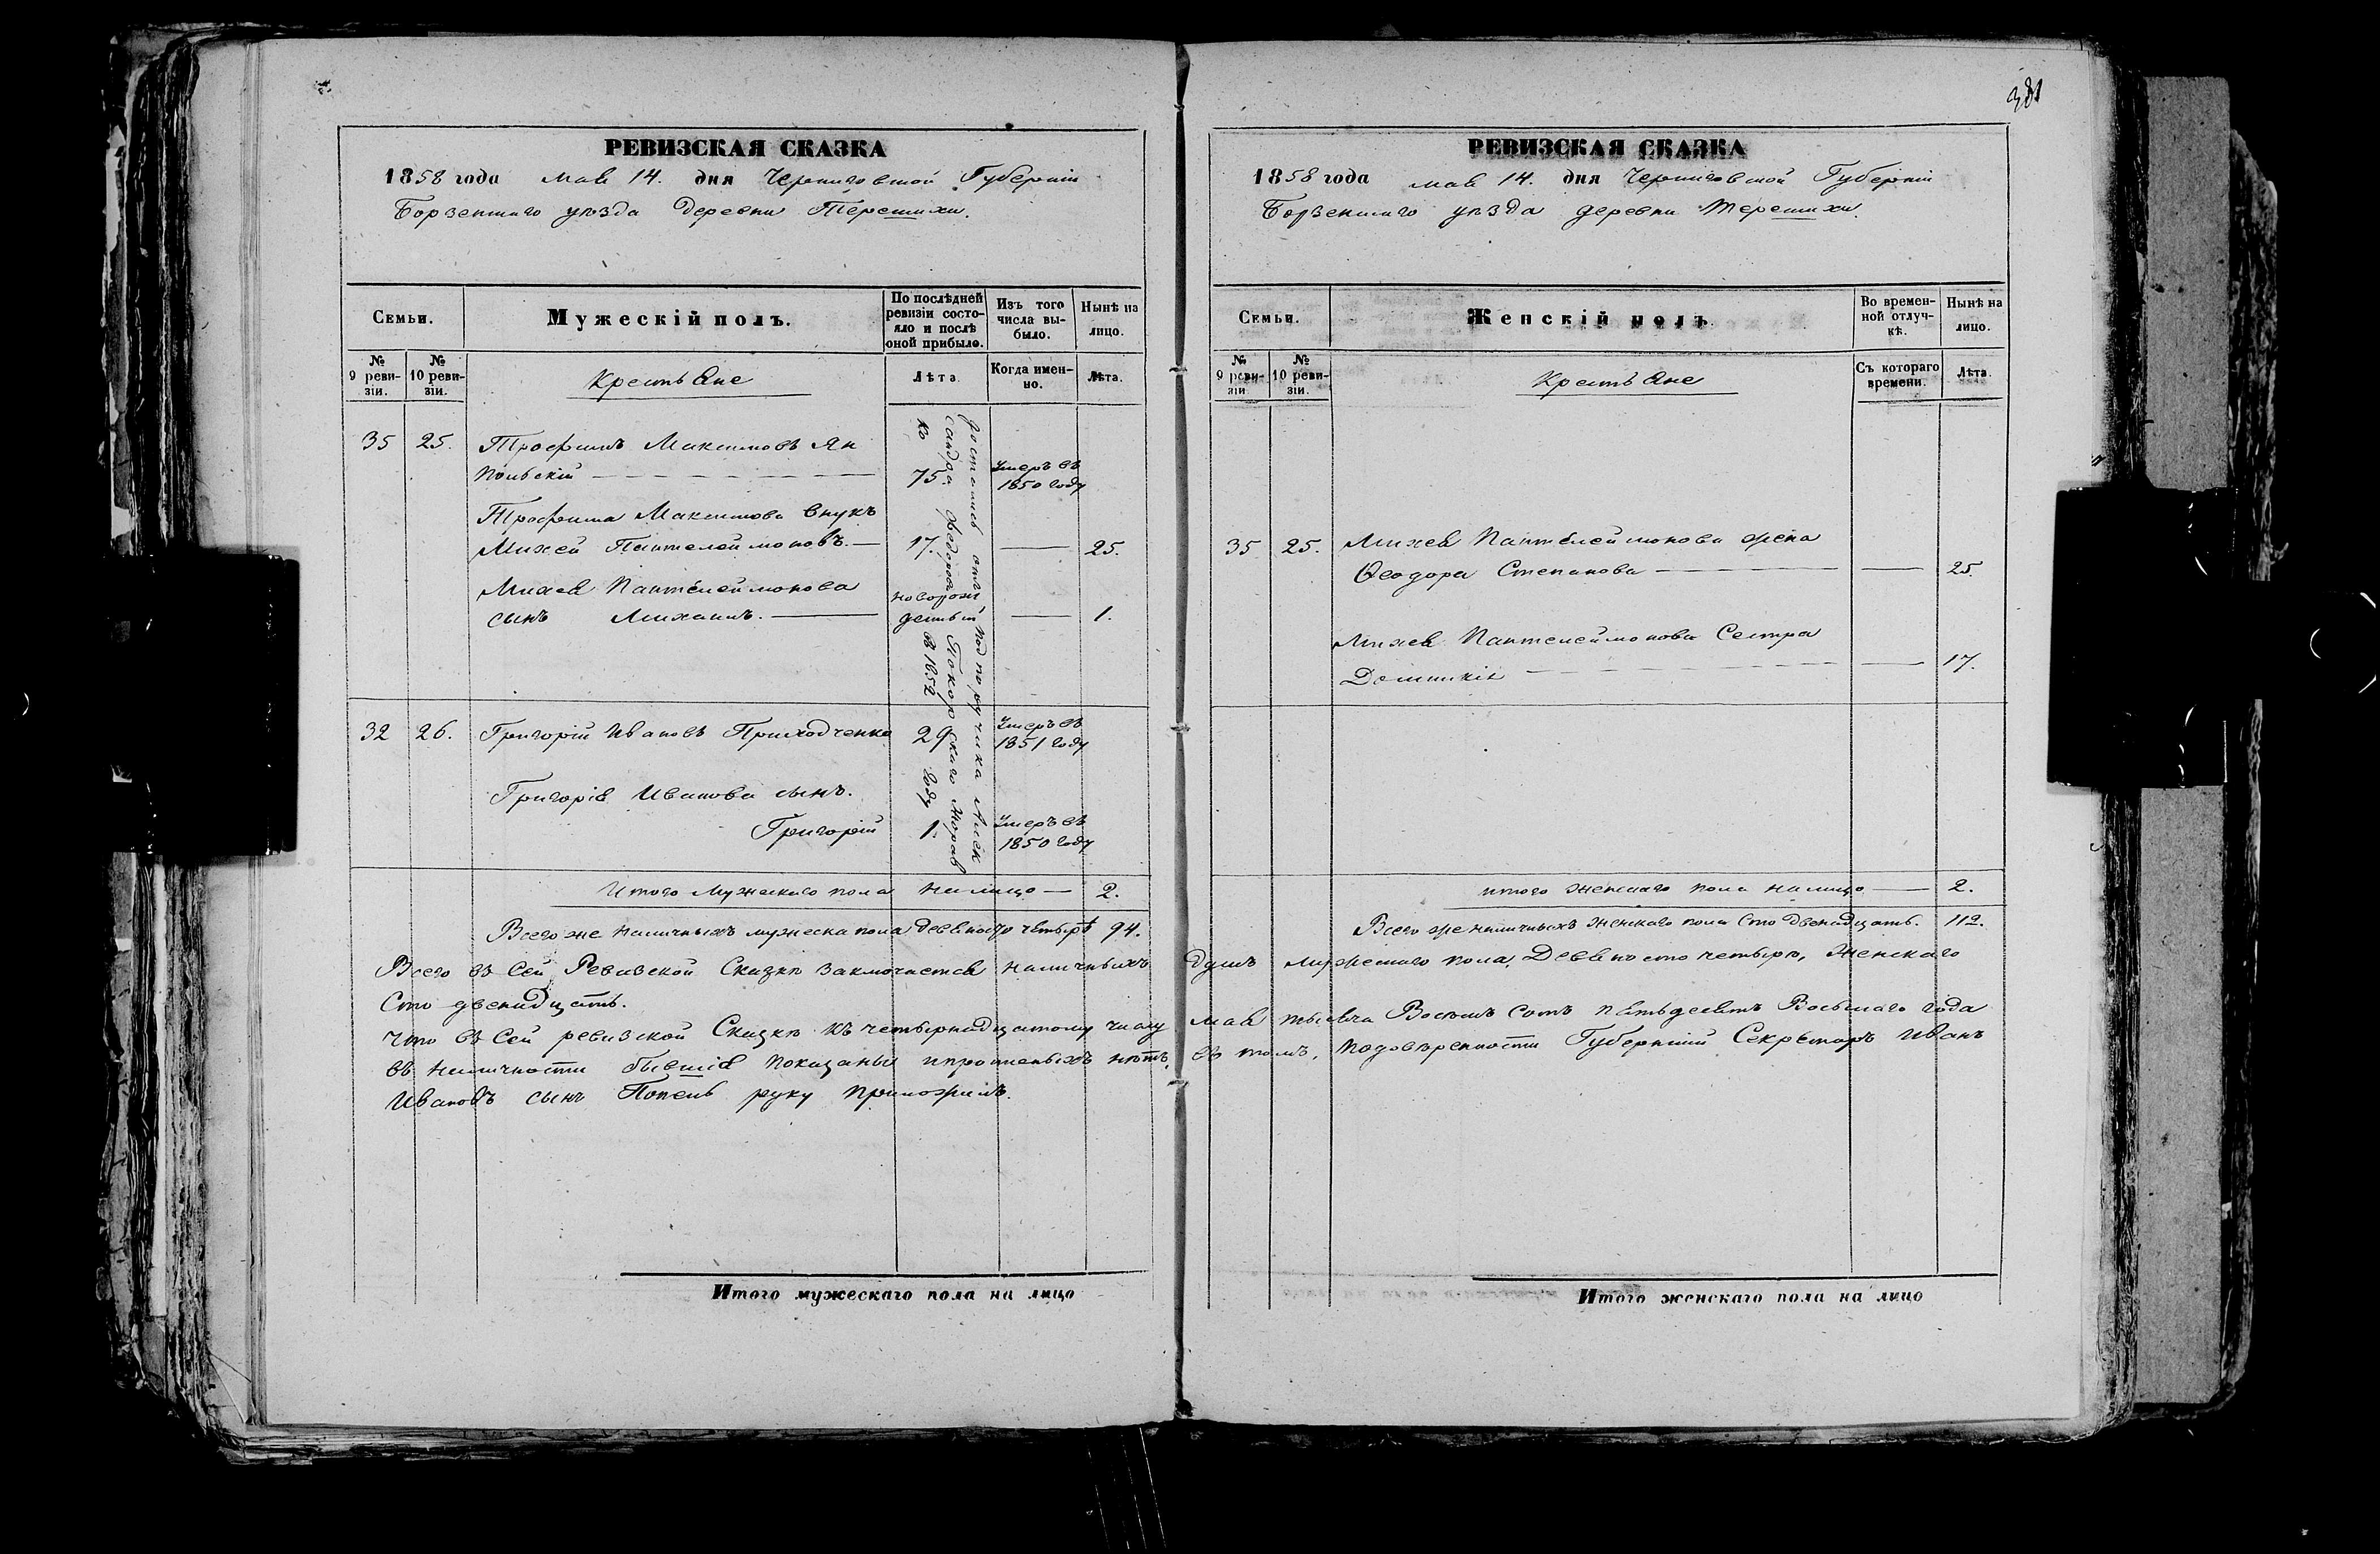 381
РЕВИЗСКАЯ СКАЗКА
1858 года мая 14. дня Черниговской Губерніи
Борзенскаго уѣзда деревни Терешихи.
Семьи.
Мужескій полъ.
По послѣдней ревизіи состояло и послѣ оной прибыло.
Изъ того числа выбыло.
Нынѣ на лицо.
№ 9 ревизіи.
№ 10 ревизіи.
Крестьяне
Лѣта
Когда именно.
Лѣта.
35 25. Трофимъ Максимовъ Ян
польскій 75. Умеръ въ 1850 году
Трофима Максимова внукъ
Михей Пантелеймоновъ. 17. 25.
Михея Пантелеймонова
сынъ Михаилъ. новорожденый 1.
32 26. Григорій Ивановъ Приходченко 29 Умеръ въ 1851 году
Григорія Иванова сынъ.
Григорій 1. Умеръ въ 1850 году
отъ подпоручика Алек
сандра Федорова Покорскаго Жорав
къ въ 1852 году
Итого Мужескаго пола налицо 2.
Всего же наличныхъ мужеска пола девяносто четыре 94.
РЕВИЗСКАЯ СКАЗКА
1858 года мая 14. дня Черниговской Губерніи
Борзенскаго уѣзда деревни Терешихи.
Семьи.
Женскій полъ
Во временной отлучкѣ.
Нынѣ на лицо.
№ 9 ревизіи
№ 10 ревизіи.
Крестьяне
Съ котораго времени.
Лѣта.
35 25. Михея Пантелеймонова жена
Феодора Степанова 25.
Михея Пантелеймонова Сестра
Домникія 17.
итого женскаго пола налицо 2.
Всего же наличныхъ женскаго пола Сто двенадцать. 112.
Всего въ Сей Ревизской Сказкѣ заключается наличныхъ душъ мужескаго пола, Девяносто четыре, Женскаго
Сто двенадцать.
Что въ Сей ревизской Сказкѣ къ четырнадцатому числу мая тысяча Восемь сотъ пятьдесятъ Восьмаго года
въ наличности бывшія показаны и прописныхъ нѣтъ, въ томъ, по довѣренности Губернскій Секретарь Иванъ
Ивановъ сынъ Попель руку приложилъ.
Итого мужескаго пола на лицо
Итого женскаго пола на лицо